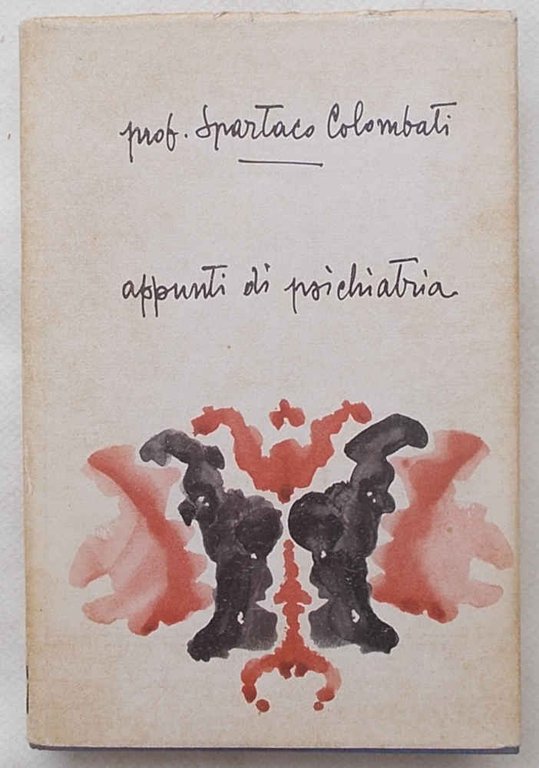 prof. Spartaco Colombati
appunti di psichiatria